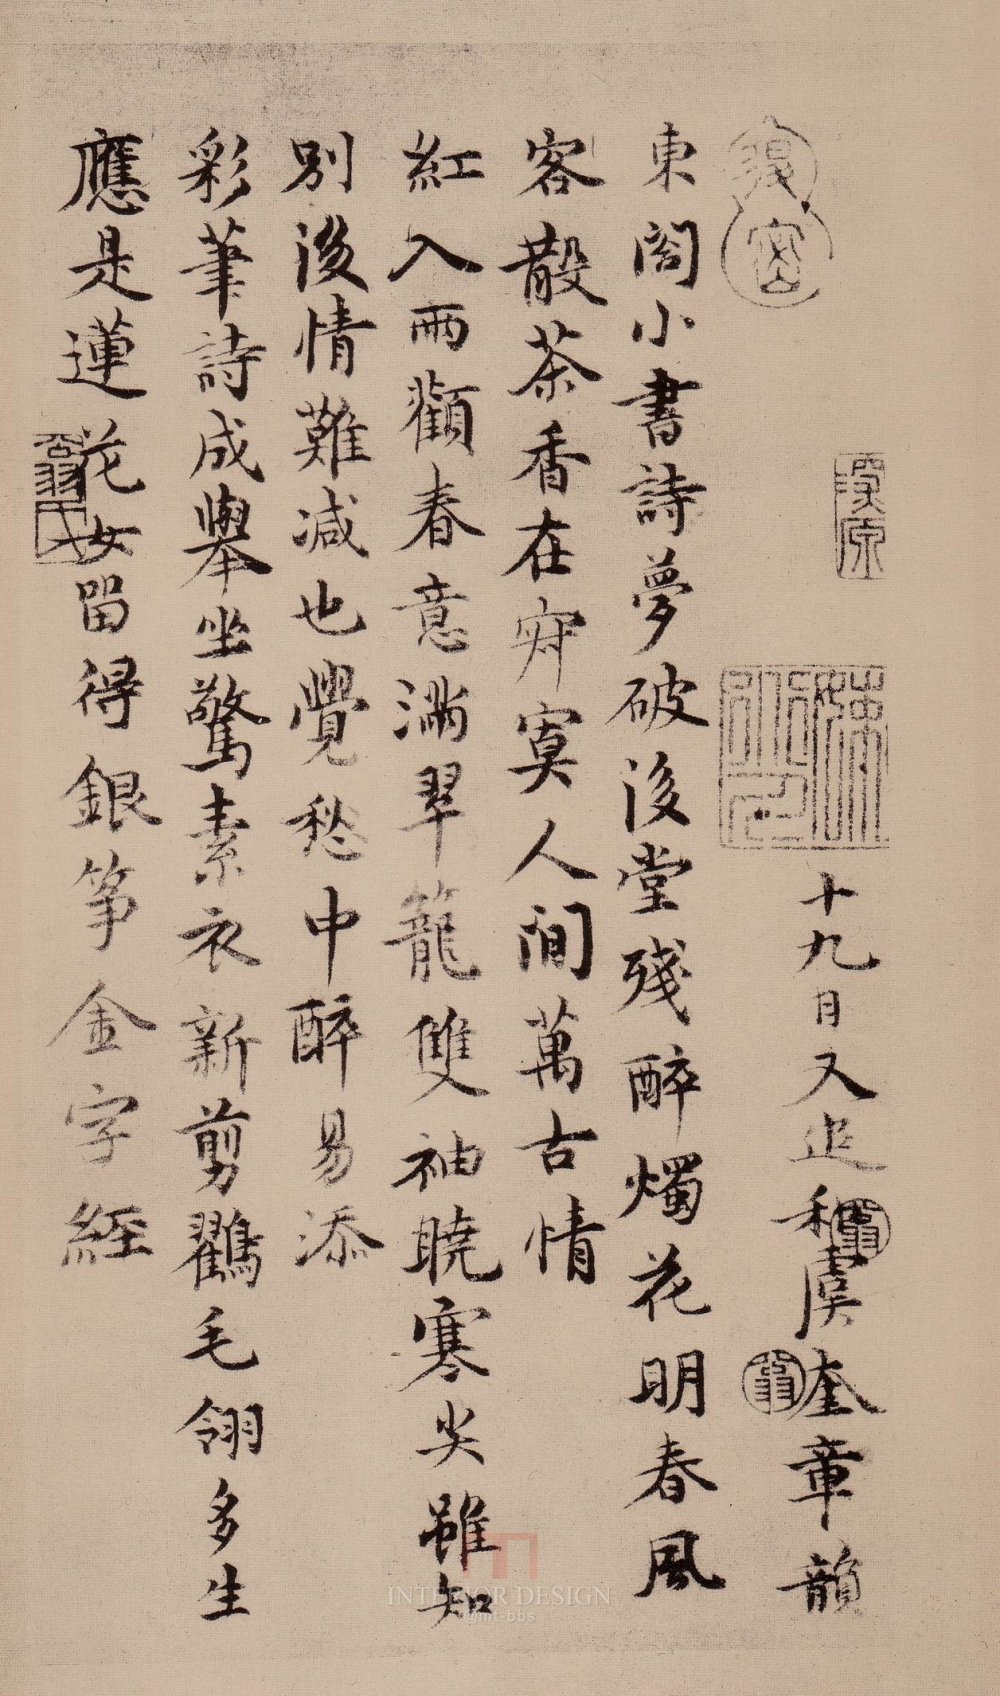 十九日又追和虞奎章韻
東閣小書詩夢破後堂殘醉燭花明春風
客散茶香在寂寞人間萬古情
紅入兩顴春意滿翠籠雙袖曉寒尖雖知
別後情難減也覺愁中醉易添
彩筆詩成舉坐驚素衣新剪鸛毛翎多生
應是蓮花女留得銀筝金字經
INTERIOR DESIGN